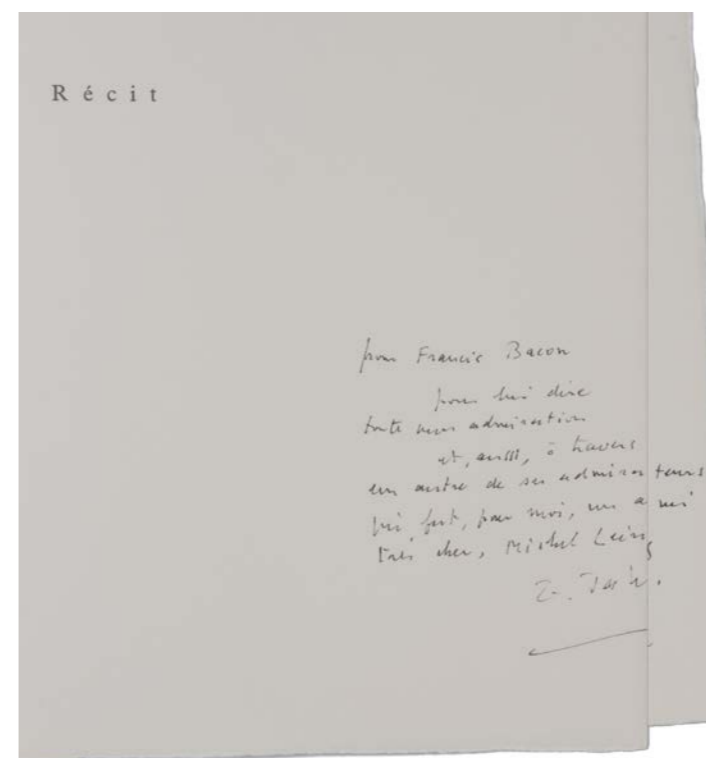 Récit
pour Francis Bacon
pour lui dire
toute mon admiration
et, aussi, à travers
un autre de ses admirateurs
qui fut, pour moi, un ami
très cher, Michel Leiris